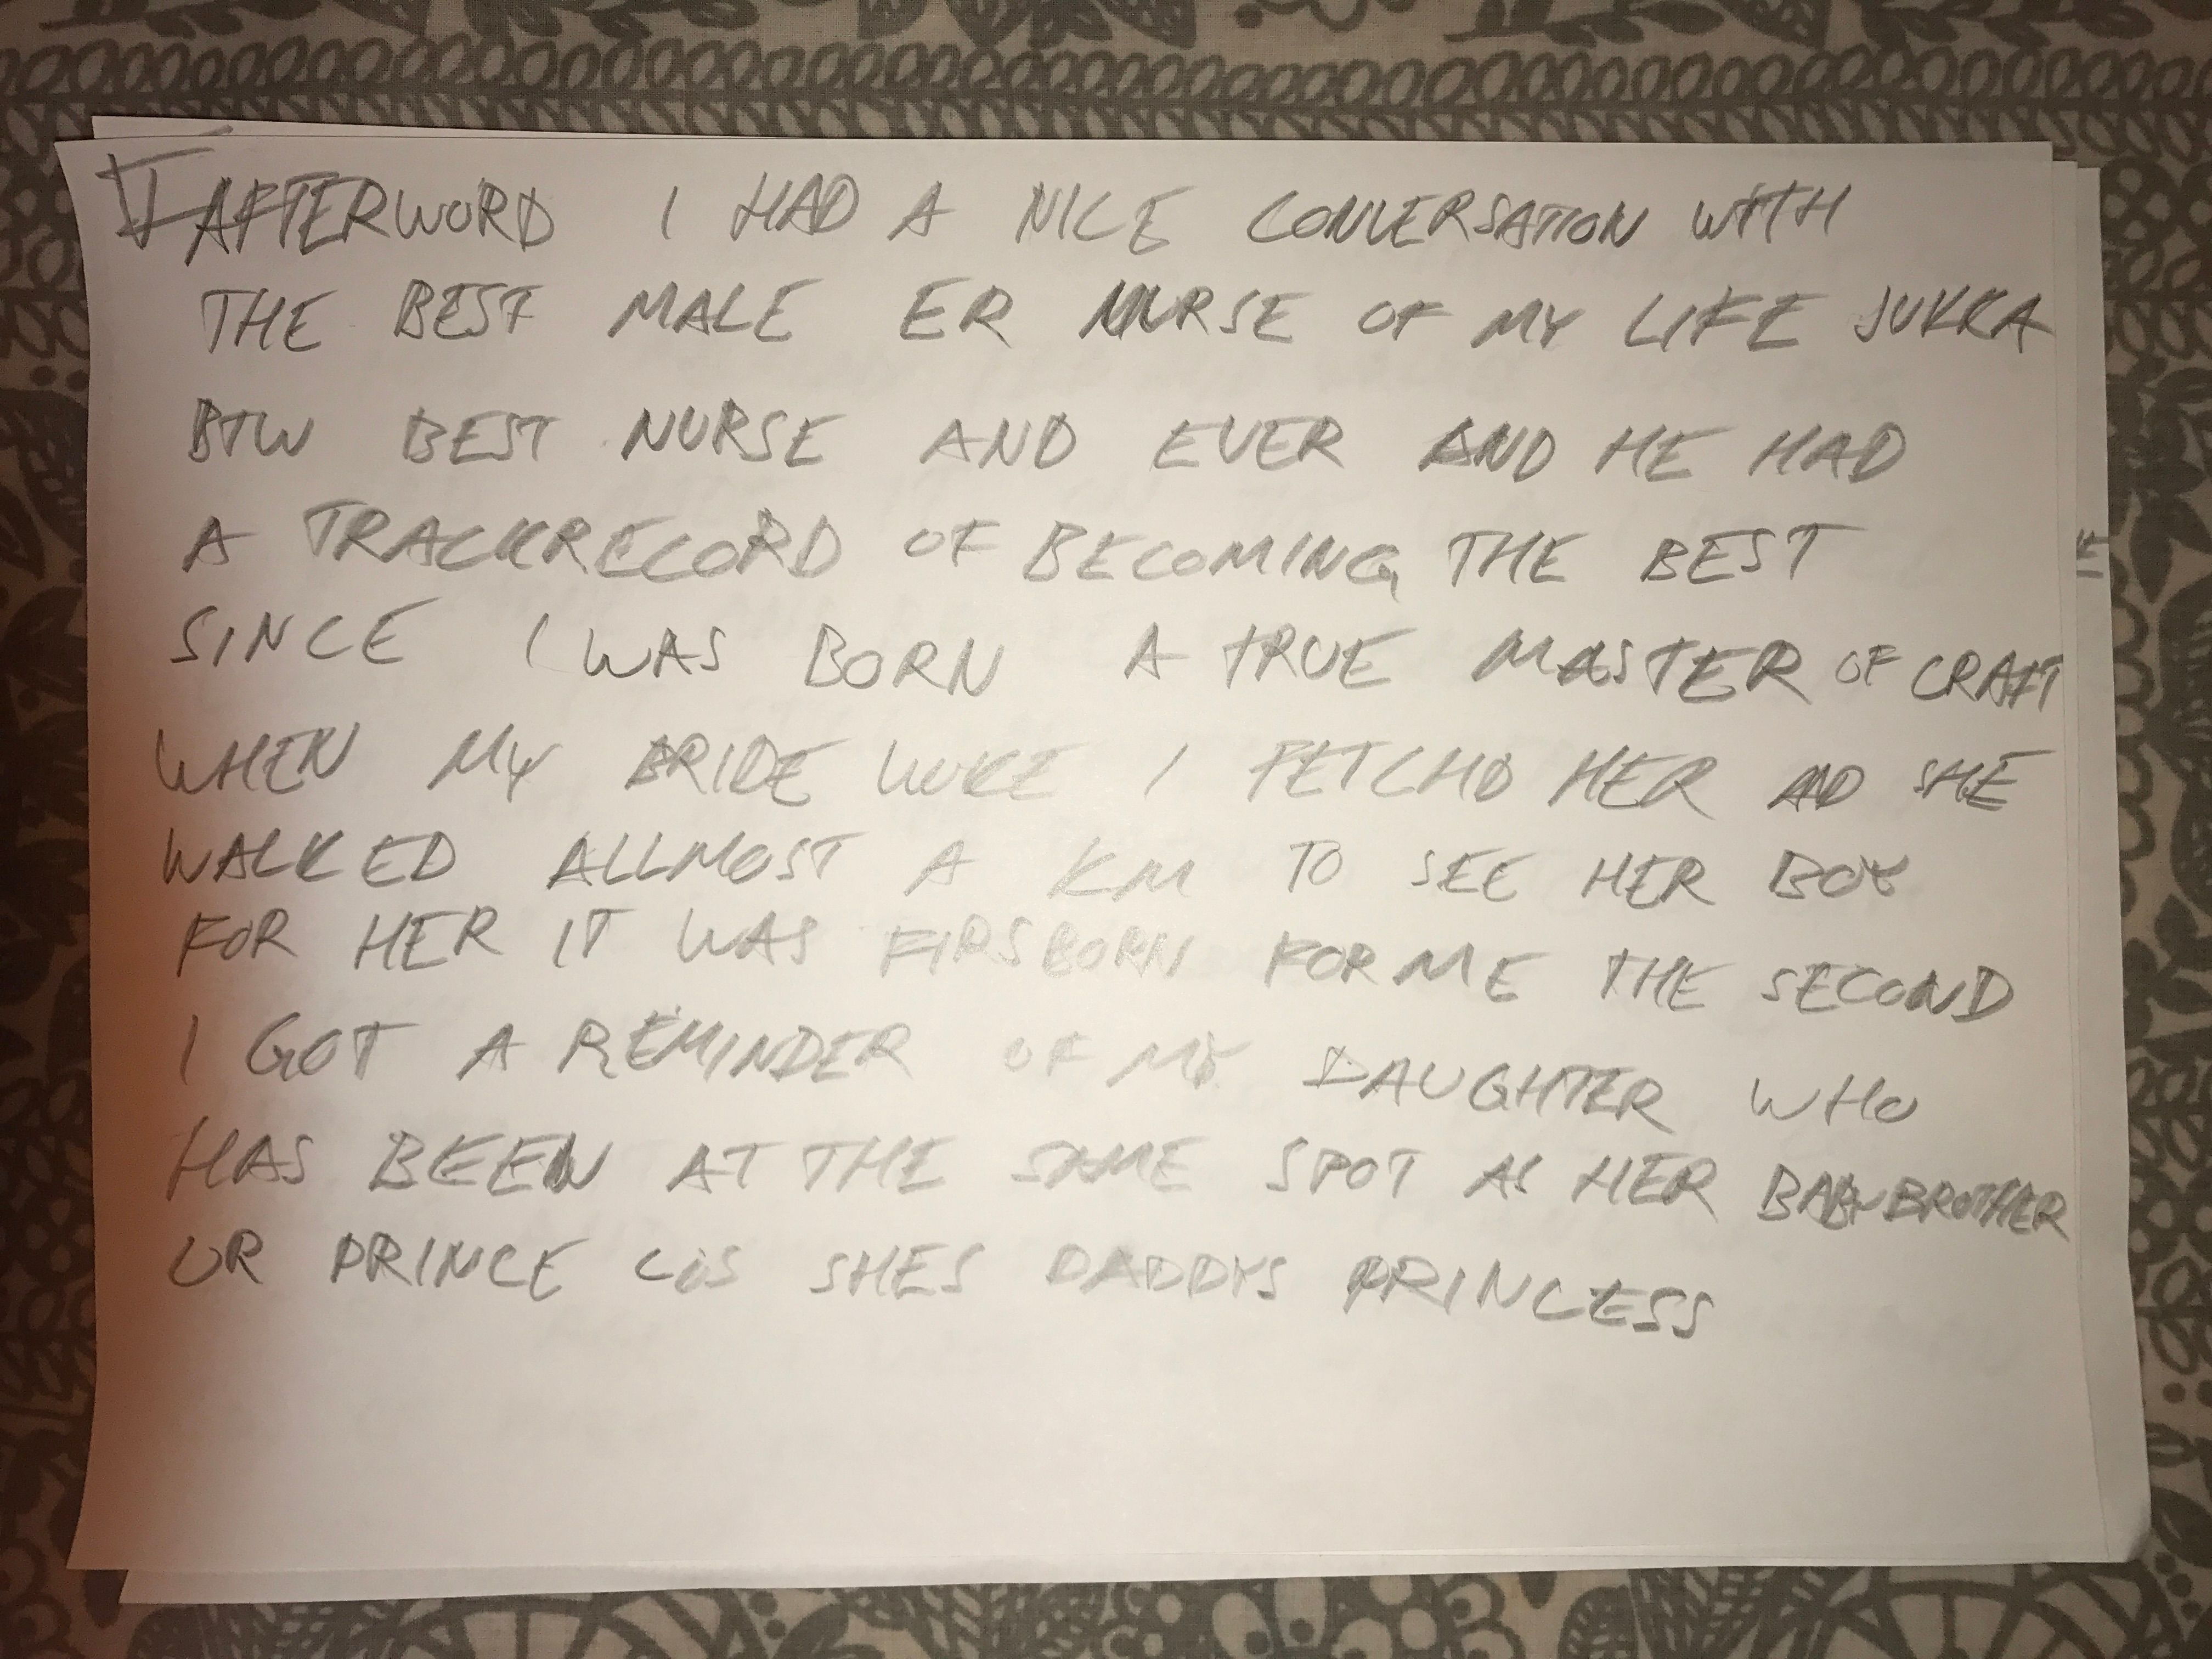 V AFTERWORD I HAD A NICE CONVERSATION WITH
THE BEST MALE ER NURSE OF MY LIFE JUKKA
BTW BEST NURSE AND EVER AND HE HAD
A TRACKRECORD OF BECOMING THE BEST
SINCE I WAS BORN A TRUE MASTER OF CRAFT
WHEN MY BRIDE WOKE I FETCHD HER AND SHE
WALKED ALLMOST A KM TO SEE HER BOY
FOR HER IT WAS FIRSBORN FOR ME THE SECOND
I GOT A REMINDER OF MY DAUGHTER WHO
HAS BEEN AT THE SAME SPOT AS HER BABYBROTHER
OR PRINCE SHES DADDYS PRINCESS